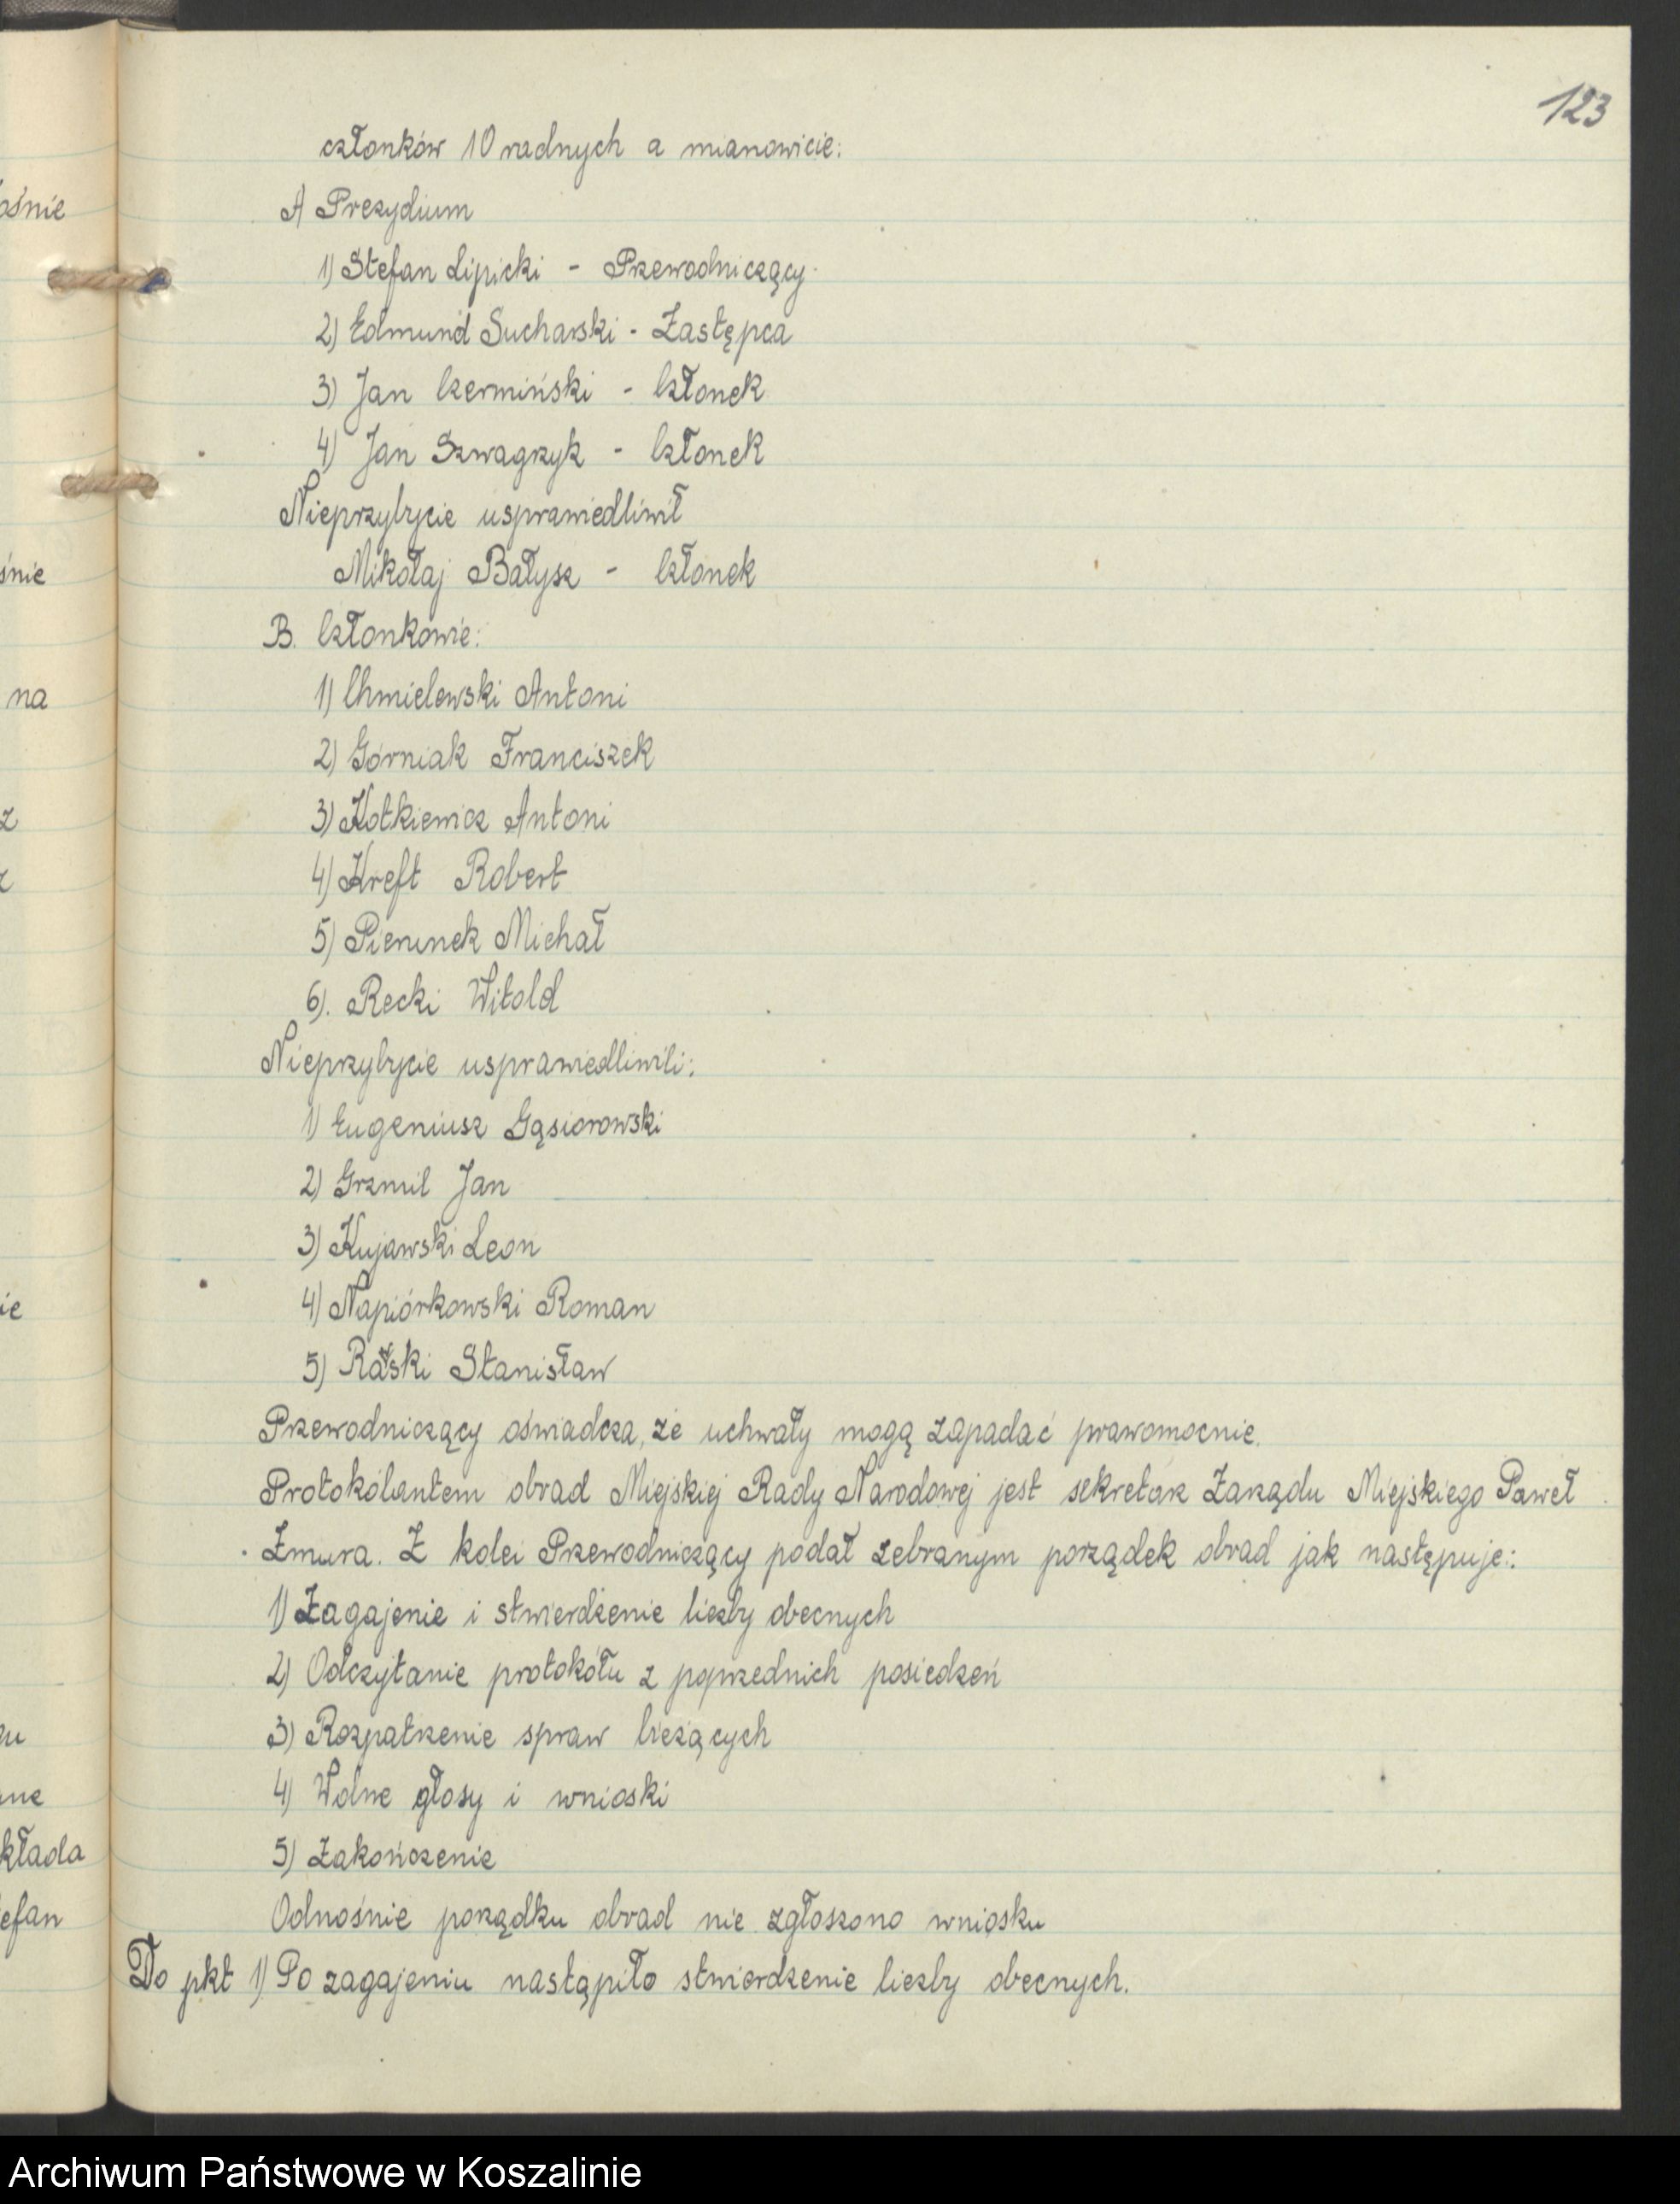 123
członków 10 radnych a mianowicie:
A) Prezydium
1) Stefan Lipicki - Przewodniczący
2) Edmund Sucharski - Zastępca
3) Jan Czermiński - Członek
4) Jan Szwagrzyk - Członek
Nieprzybycie usprawiedliwił
Mikołaj Bałysz - Członek
B. Członkowie:
1) Chmielewski Antoni
2) Górniak Franciszek
3) Kotkiewicz Antoni
4) Kreft Robert
5) Pierunek Michał
6). Recki Witold
Nieprzybycie usprawiedliwili:
1) Eugeniusz Gąsiorowski
2) Grzmil Jan
3) Kujawski Leon
4) Napiórkowski Roman
5) Stanisław
Przewodniczący oświadcza, że uchwały mogą zapadać prawomocnie.
Protokólantem obrad Miejskiej Rady Narodowej jest sekretarz Zarządu Miejskiego Paweł
Żmura. Z kolei Przewodniczący podał zebranym porządek obrad jak następuje:
1) Zagajenie i stwierdzenie liczby obecnych
2) Odczytanie protokółu z poprzednich posiedzeń
3) Rozpatrzenie spraw bieżących
4) Wolne głosy i wnioski
5) Zakończenie
Odnośnie porządku obrad nie zgłoszono wniosku
Do pkt 1) Po zagajeniu nastąpiło stwierdzenie liczby obecnych.
ośnie
śnie
na
z
z
ie
kłada
efan
Archiwum Państwowe w Koszalinie